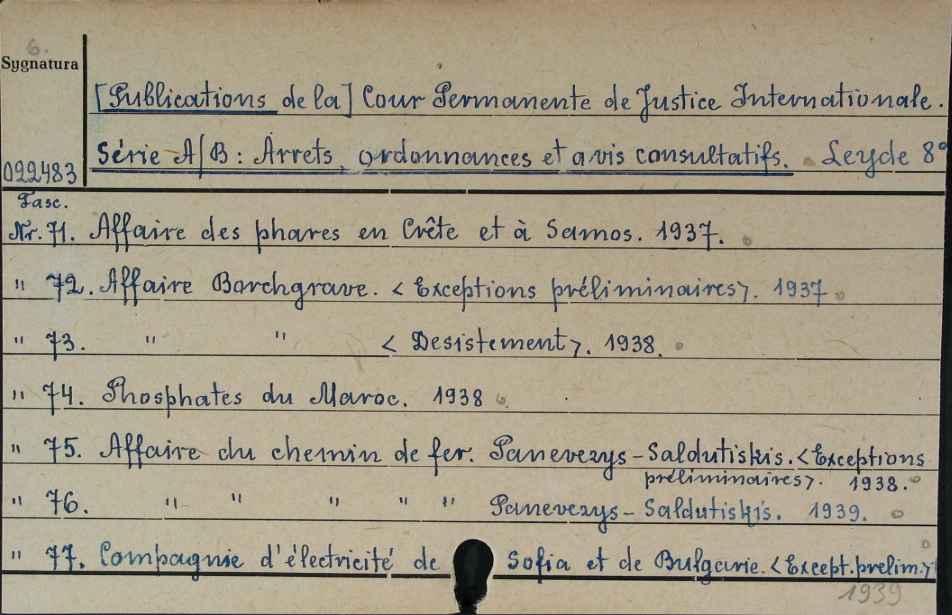 6.
Sygnatura
[Publications de la] Cour Permanente de Justice Internationale.
Série A/B: Arrets, ordonnances et avis consultatifs. Leyde 8°
022483
Fasc.
Nr. 71. Affaire des phares en Crête et à Samos. 1937.
" 72. Affaire Borchgrave. < Exceptions préliminaires>. 1937
" 73. " " < Desistement>. 1938.
" 74. Phosphates du Maroc. 1938
" 75. Affaire du chemin de fer. Panevezys-Saldutiskis. <Exceptions
préliminaires>. 1938.
" 76. " " " " " Panevezys-Saldutiskis. 1939.
" 77. Compagnie d'électricité de Sofia et de Bulgarie. <Except.prelim.>
1939